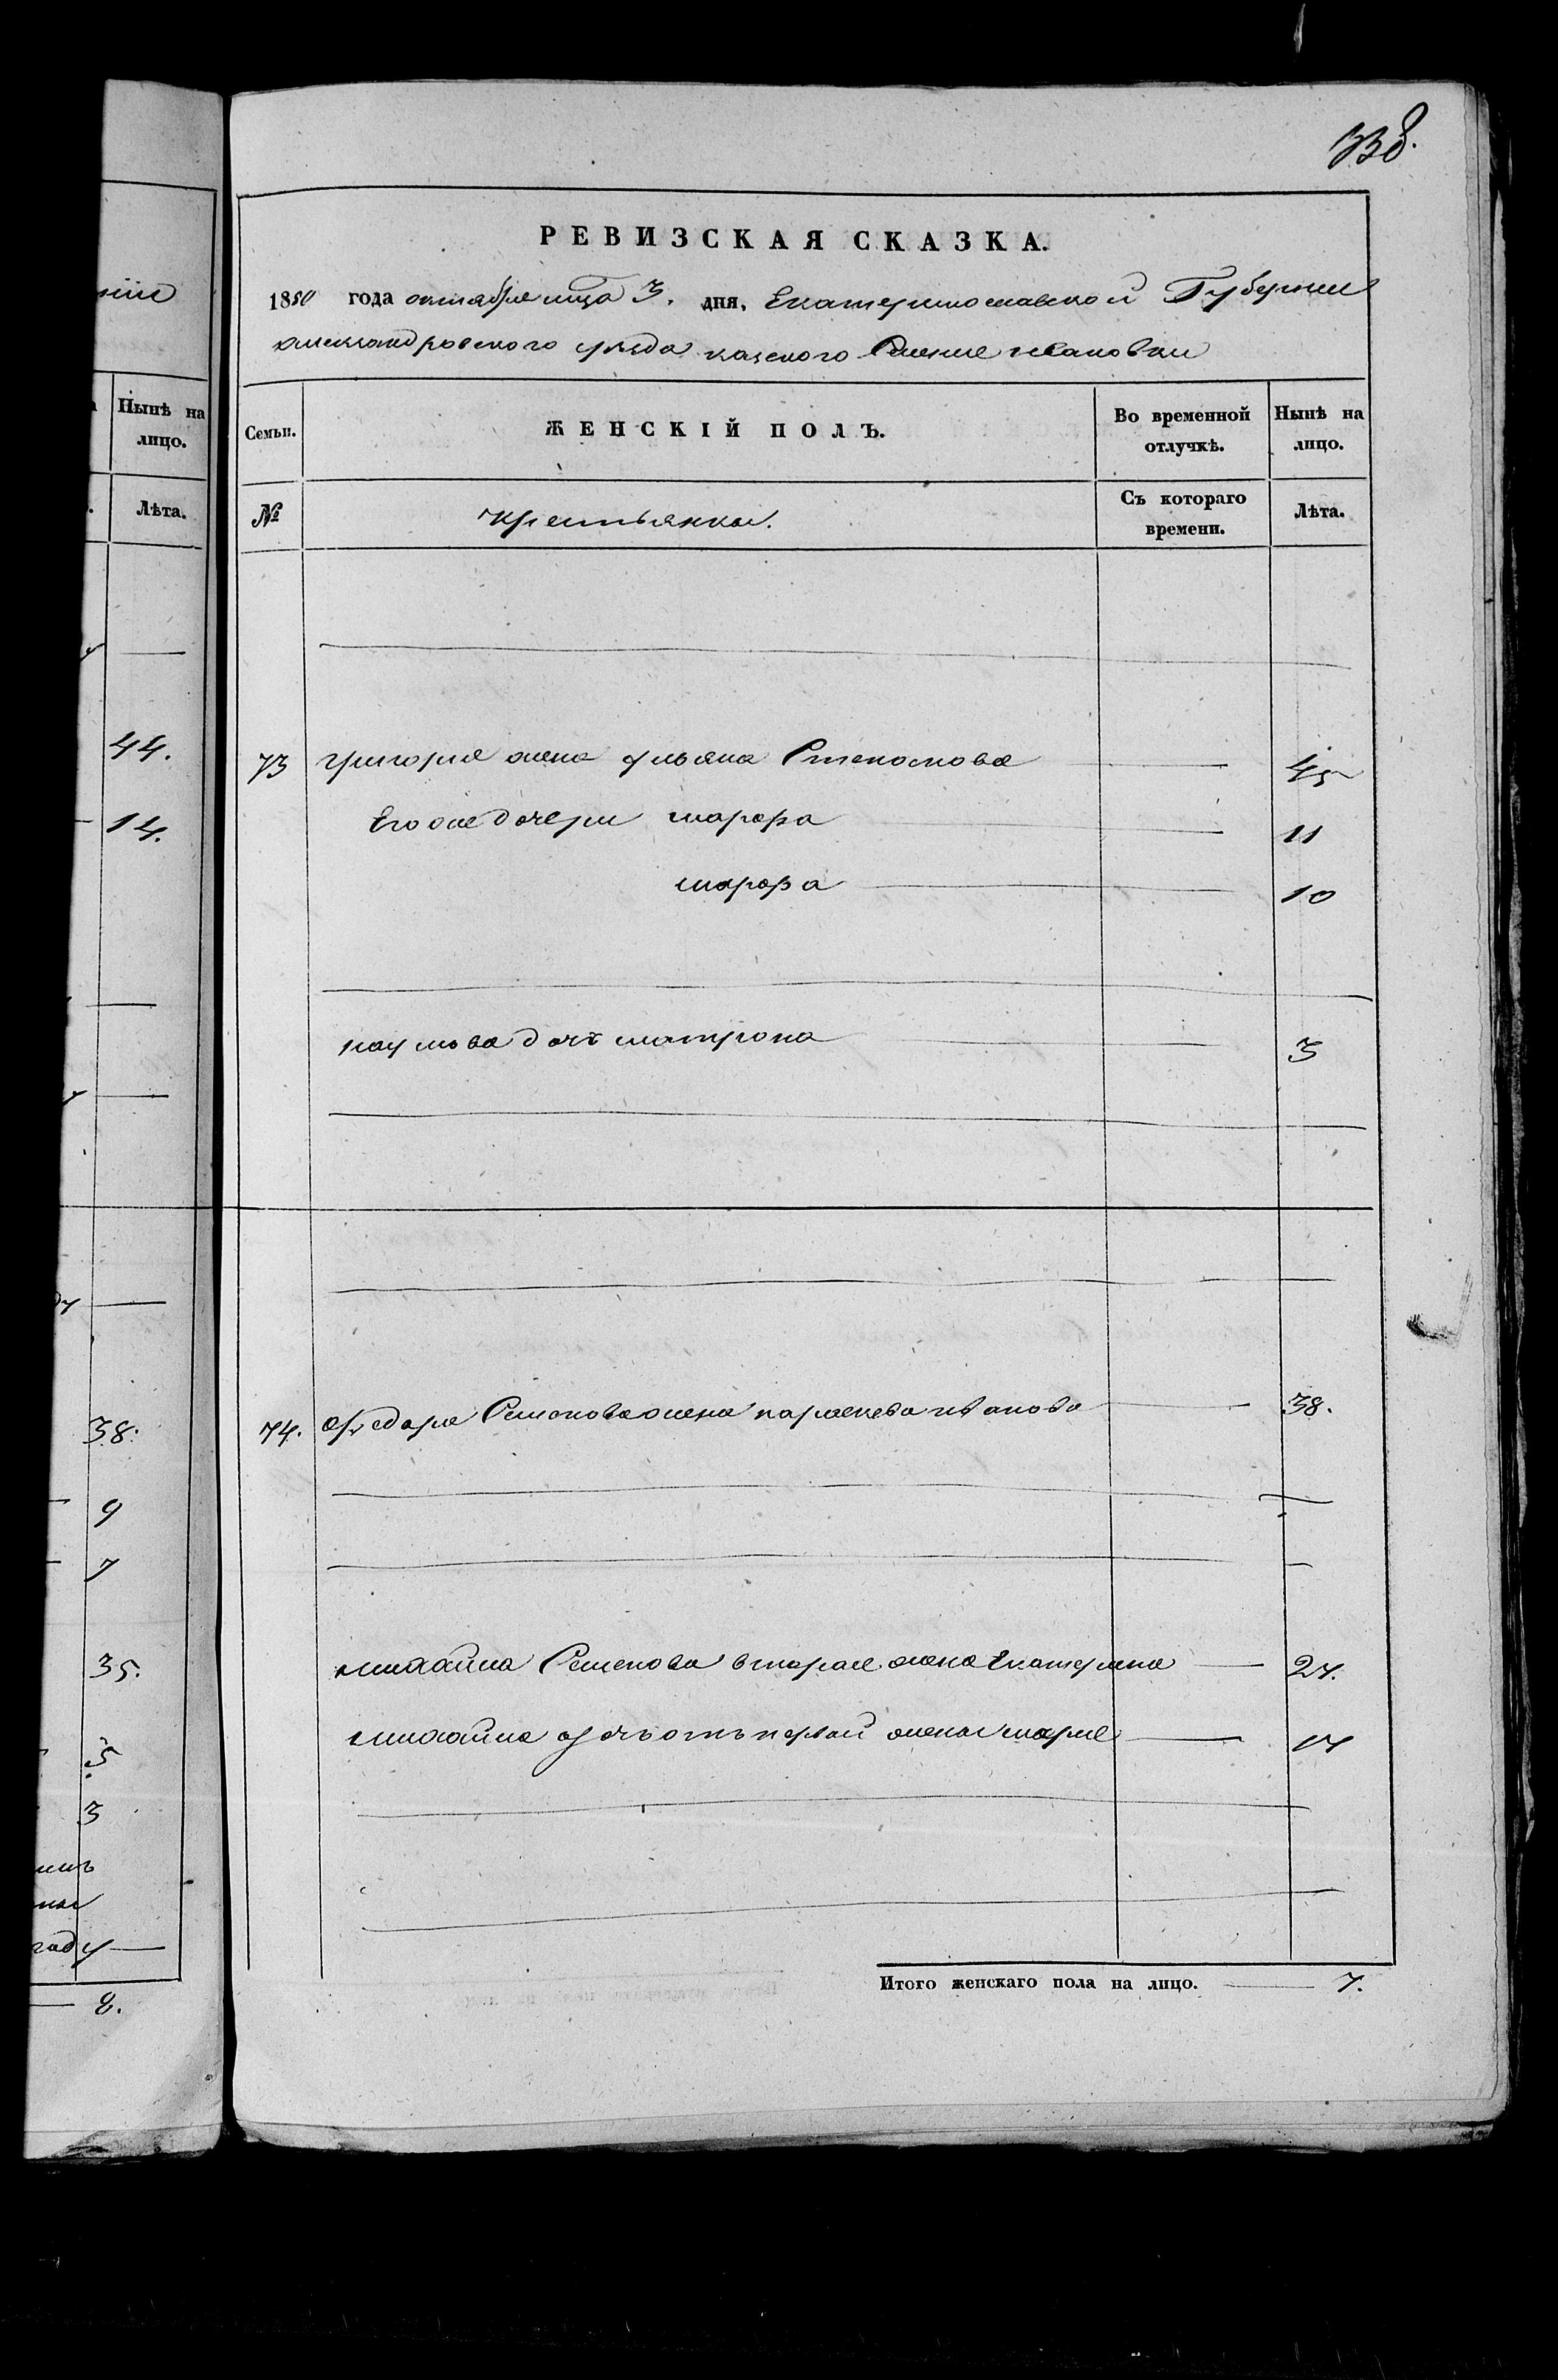 338.
РЕВИЗСКАЯ СКАЗКА.
1850 года октября мца 3. дня, Екатеринославской Губернии
александровского уезда казеного Селения ивановки
Нынѣ на лицо.
Лѣта.
44.
14.
38.
9
7
35.
5
3
году
8.
Семьи.
ЖЕНСКІЙ ПОЛЪ.
Во временной отлучкѣ.
Нынѣ на лицо.
№
крестьянки.
Съ котораго времени.
Лѣта.
73 григория жена ульяна 45
Его же дочери марфа 11
марфа 10
наумова дочь матрона 3
74. федора Семенова жена парасковея иванова 38.
михайла Семенова вторая жена Екатерина 24.
михайла дочь отъ первой жены мария 14
Итого женскаго пола на лицо. 7.